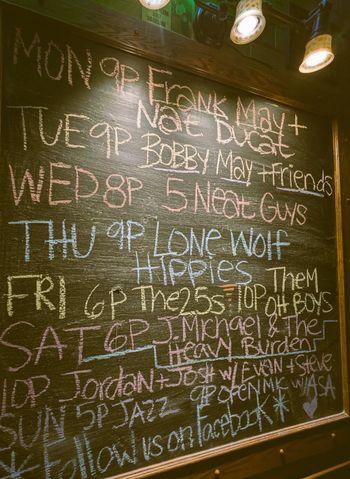 MON 9P Frank May +
Nat Ducat
TUE 9P BOBBY MAY + Friends
WED 8P 5 Neat Guys
THU 9P Lone Wolf
Hippies
FRI 6P The 25s = 10P Them
OH BOYS
SAT 6P J. Michael & The
Heavy Burden
10P Jordan + Josh w/ Evan + Steve
SUN 5P JAZZ 9P OPEN MIC w/ ASA
* Follow us on facebook *